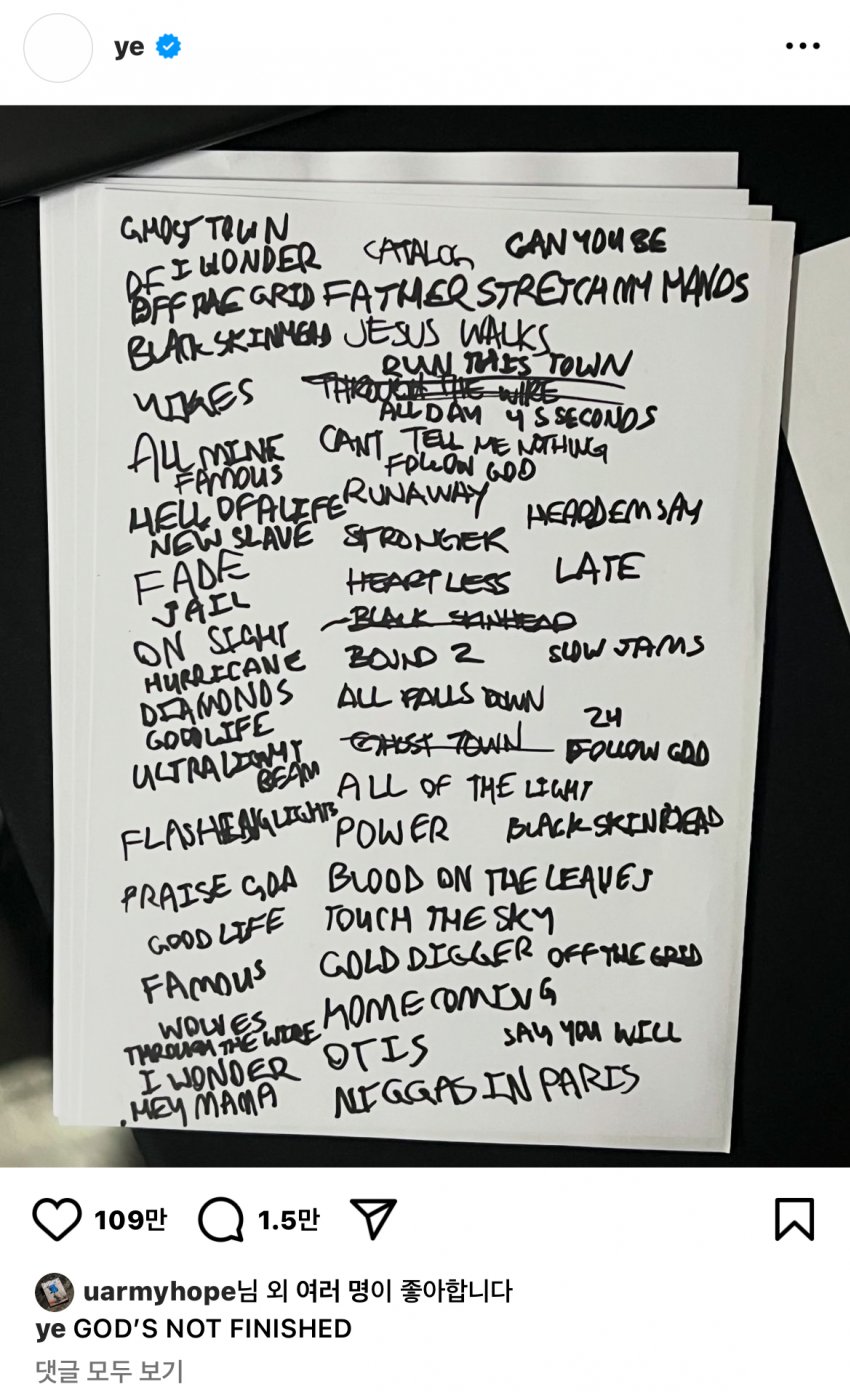 ye
GHOST TOWN
OF I WONDER
CATALOG
CAN YOU BE
OFF THE GRID
FATHER STRETCH MY HANDS
BLACK SKINHEAD
JESUS WALKS
RUN THIS TOWN
YIKES
THROUGH THE WIRE
ALL DAY
4 5 SECONDS
ALL MINE
CANT TELL ME NOTHING
FAMOUS
FOLLOW GOD
HELL OF A LIFE
RUNAWAY
HEARD EM SAY
NEW SLAVE
STRONGER
FADE
HEARTLESS
LATE
JAIL
BLACK SKINHEAD
ON SIGHT
BOUND 2
SLOW JAMS
HURRICANE
DIAMONDS
ALL FALLS DOWN
GOOD LIFE
GHOST TOWN
24
FOLLOW GOD
ULTRALIGHT
BEAM
ALL OF THE LIGHT
FLASHING LIGHTS
POWER
BLACK SKINHEAD
PRAISE GOD
BLOOD ON THE LEAVES
GOOD LIFE
TOUCH THE SKY
FAMOUS
GOLD DIGGER
OFF THE GRID
WOLVES
HOMECOMING
THROUGH THE WIRE
I WONDER
OTIS
SAY YOU WILL
HEY MAMA
NIGGAS IN PARIS
109만
1.5만
uarmyhope님 외 여러 명이 좋아합니다
ye GOD'S NOT FINISHED
댓글 모두 보기